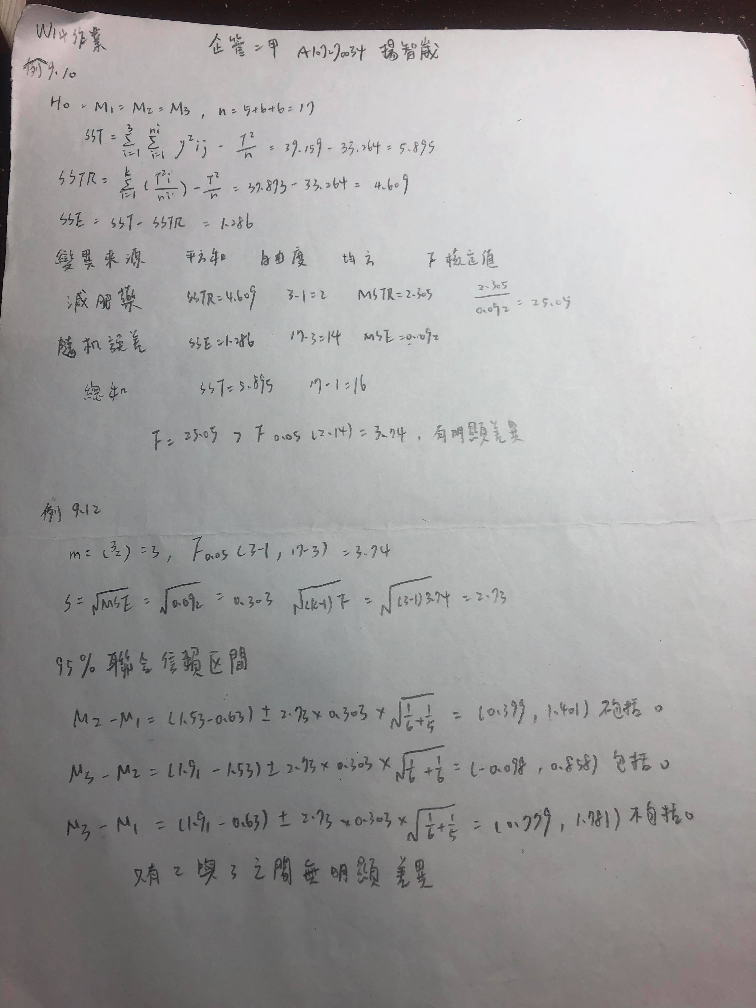 W14作業 企管二甲 A10770034 楊智崴
例9.10
Ho = M1 = M2 = M3 , n = 5+6+6 = 17
SST = Σ(i=1→3) Σ(i=1→ni) y²ij - T²/n = 39.159 - 33.264 = 5.895
SSTR = Σ(i=1→k) (T²i/ni) - T²/n = 37.873 - 33.264 = 4.609
SSE = SST - SSTR = 1.286
變異來源 平方和 自由度 均方 F檢定值
減肥藥 SSTR=4.609 3-1=2 MSTR=2.305 2.305/0.092 = 25.05
隨机誤差 SSE=1.286 17-3=14 MSE=0.092
總和 SST=5.895 17-1=16
F = 25.05 > F 0.05 (2.14) = 3.74 , 有明顯差異
例 9.12
m = (3/2) = 3 , F0.05 (3-1 , 17-3) = 3.74
S = √MSE = √0.092 = 0.303 √(k-1)F = √(3-1)3.74 = 2.73
95% 聯合信賴区間
M2 - M1 = (1.53-0.63) ± 2.73 × 0.303 × √(1/6+1/5) = (0.399 , 1.401) 不包括0
M3 - M2 = (1.91 - 1.53) ± 2.73 × 0.303 × √(1/6+1/6) = (-0.098 , 0.858) 包括0
M3 - M1 = (1.91 - 0.63) ± 2.73 × 0.303 × √(1/6+1/5) = (0.779 , 1.781) 不包括0
只有2與3之間無明顯差異